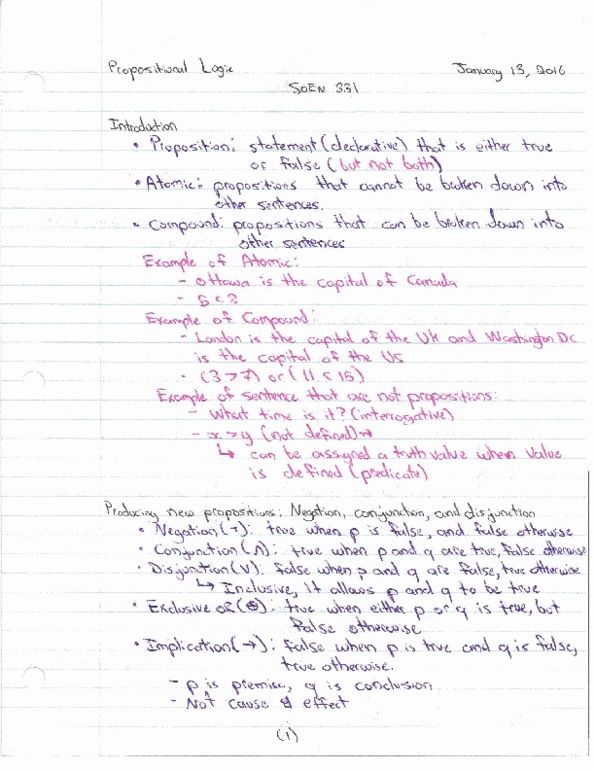 Propositional Logic January 13, 2016
SOEN 331
Introduction
• Proposition: statement (declarative) that is either true
or false (but not both)
• Atomic: propositions that cannot be broken down into
other sentences.
• Compound: propositions that can be broken down into
other sentences
Example of Atomic:
- Ottawa is the capital of Canada
Example of Compound:
- London is the capital of the UK and Washington Dc
is the capital of the US
- (3 > 7) or (11 < 15)
Example of sentence that are not propositions:
- What time is it? (interrogative)
- x > y (not defined) →
↳ can be assigned a truth value when value
is defined (predicate)
Producing new propositions: Negation, conjunction, and disjunction
• Negation (¬): true when p is false, and false otherwise
• Conjunction (∧): true when p and q are true, false otherwise
• Disjunction (∨): false when p and q are false, true otherwise
↳ Inclusive, it allows p and q to be true
• Exclusive or (⊕): true when either p or q is true, but
false otherwise
• Implication (→): false when p is true and q is false,
true otherwise.
- p is premise, q is conclusion
- Not cause & effect
(1)